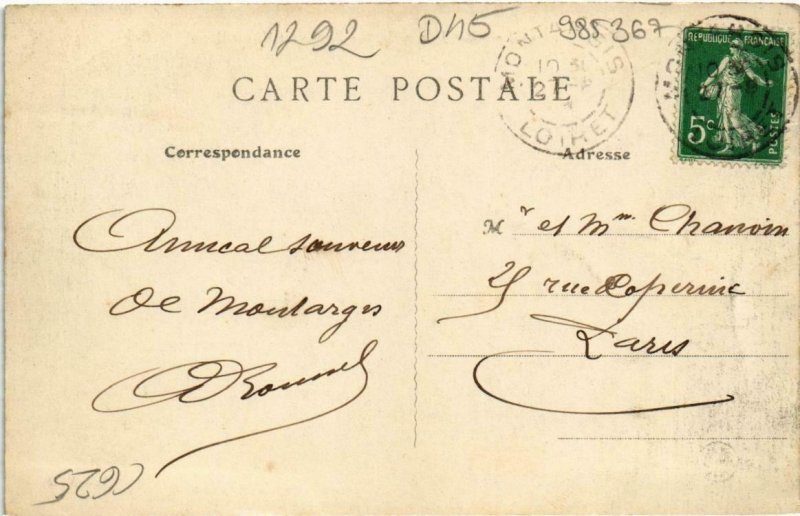 1292 D45 985367
MONTARGIS
LOIRET
REPUBLIQUE FRANÇAISE
5c
POSTES
CARTE POSTALE
Correspondance
Adresse
Amical souvenir
de Montargis
Mr et Mme Chanvin
25 rue Copernic
Paris
C625